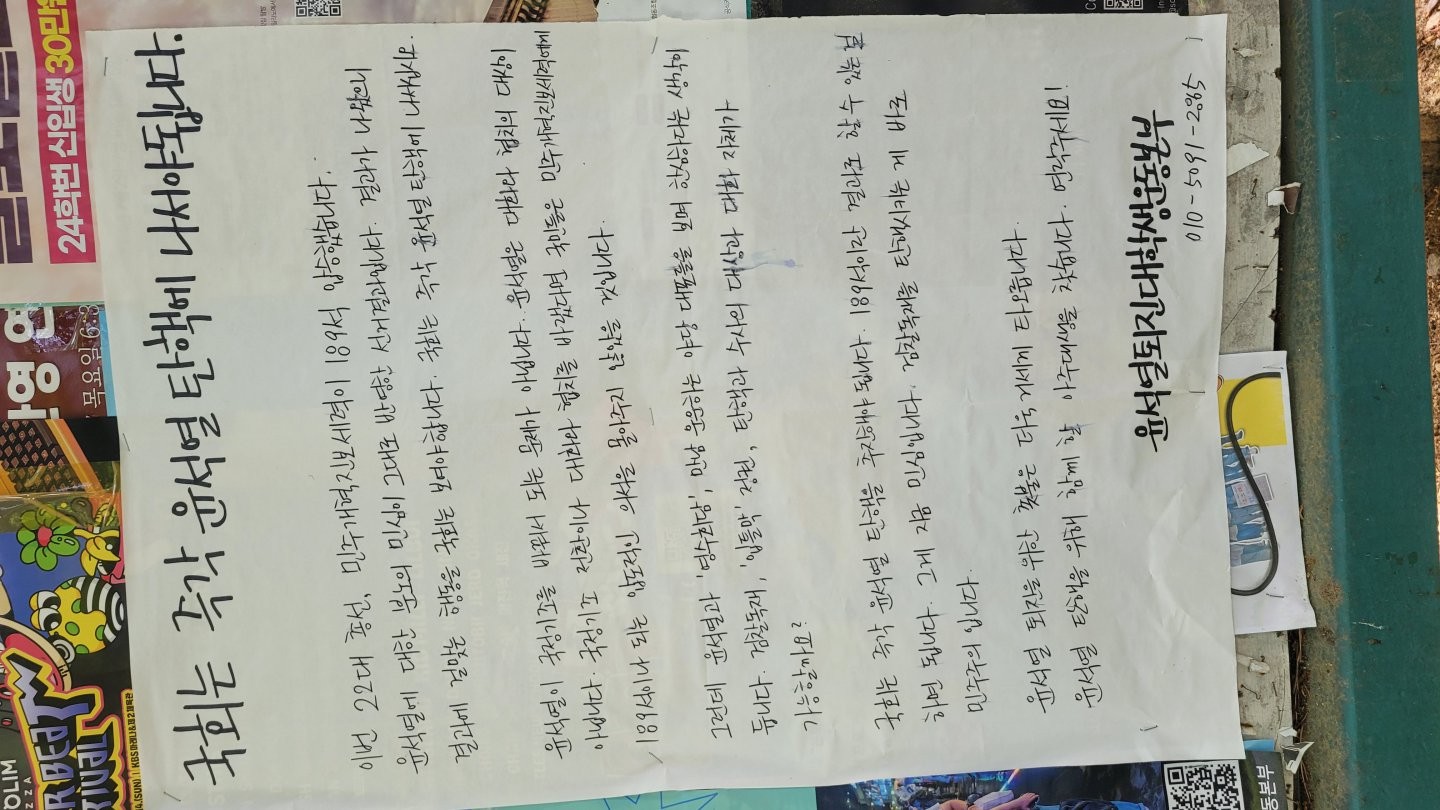 국회는 즉각 윤석열 탄핵에 나서야됩니다.
이번 22대 총선, 민주개혁진보세력이 189석 압승했습니다.
윤석열에 대한 분노의 민심이 그대로 반영한 선거결과입니다. 결과가 나왔으니
결과에 걸맞는 행동을 국회는 보여야합니다. 국회는 즉각 윤석열 탄핵에 나서십시오.
윤석열이 국정기조를 바꿔서 되는 문제가 아닙니다. 윤석열은 대화와 협치의 대상이
아닙니다. 국정기조 전환이나 대화와 협치를 바랬다면 국민들은 민주개혁진보세력에게
189석이나 되는 압도적인 의석을 몰아주지 않았을 것입니다.
그런데 윤석열과 '영수회담', 만남 운운하는 야당 대표들을 보면 한심하다는 생각이
듭니다. 검찰독재, '입틀막' 정권, 탄핵과 수사의 대상과 대화 자체가
가능할까요?
국회는 즉각 윤석열 탄핵을 추진해야 됩니다. 189석이란 결과로 할 수 있는 분
하면 됩니다. 그게 지금 민심입니다. 검찰독재를 탄핵시키는 게 바로
민주주의 입니다.
윤석열 퇴진을 위한 촛불은 더욱 거세게 타오릅니다.
윤석열 탄핵을 위해 함께 할 아주대생을 찾습니다. 연락주세요!
윤석열퇴진대학생운동본부
010-5091-2985
24학번 신입생 30만원
목요일 6:3
KBS아레나&제2체육관
동본부